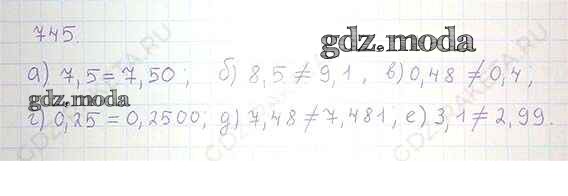 745.
gdz.moda
а) 7,5 = 7,50; б) 8,5 ≠ 9,1, в) 0,48 ≠ 0,4,
gdz.moda
г) 0,25 = 0,2500; д) 7,48 ≠ 7,481, е) 3,1 ≠ 2,99.